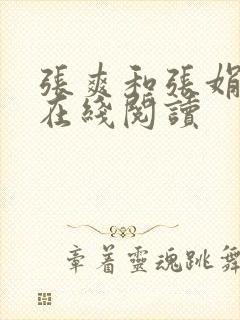 張爽和張娟
在綫閱讀
章着靈魂跳舞